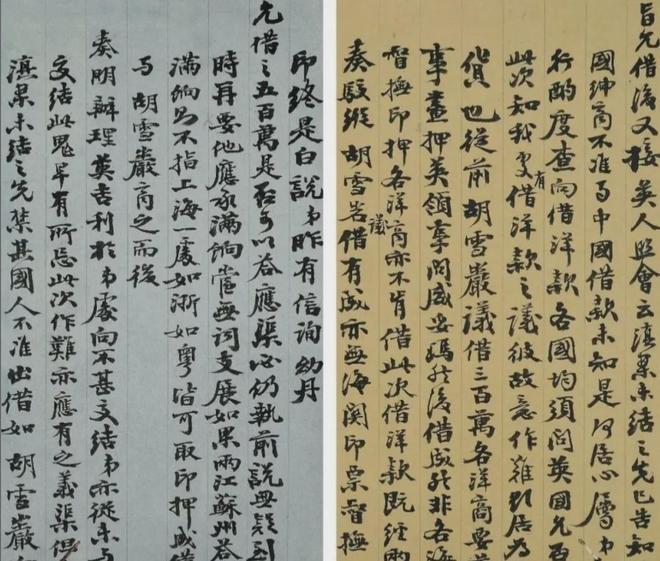 旨允借後又接英人照會云滇案未結之先已告知
國紳商不准与中國借款未知是何居心層
行酌度查向借洋款各國均須問英國允否
此次知我又有借洋款之議彼故意作難野居為
貨也從前胡雪巖議借三百萬各洋商要
事畫押英領事問威妥瑪然後借成然非各海
督撫印押各洋商亦不肯借此次借洋款既經
奏駁縱胡雪岩議借有成亦無海関印票督撫
印終是白說弟昨有信詢幼丹
允借之五百萬是否可以荅應渠必仍執前說無疑到
時再要他應承滿餉當無詞支展如果兩江蘇州荅
滿餉即不指上海一處如浙如粵皆可取印押成借
与胡雪巖商之而後
奏明辦理英吉利於弟處向不甚交結弟亦從未与
交結此鬼早有所忌此次作難亦應有之義渠俱
滇案未結之先禁其國人不准出借如胡雪巖